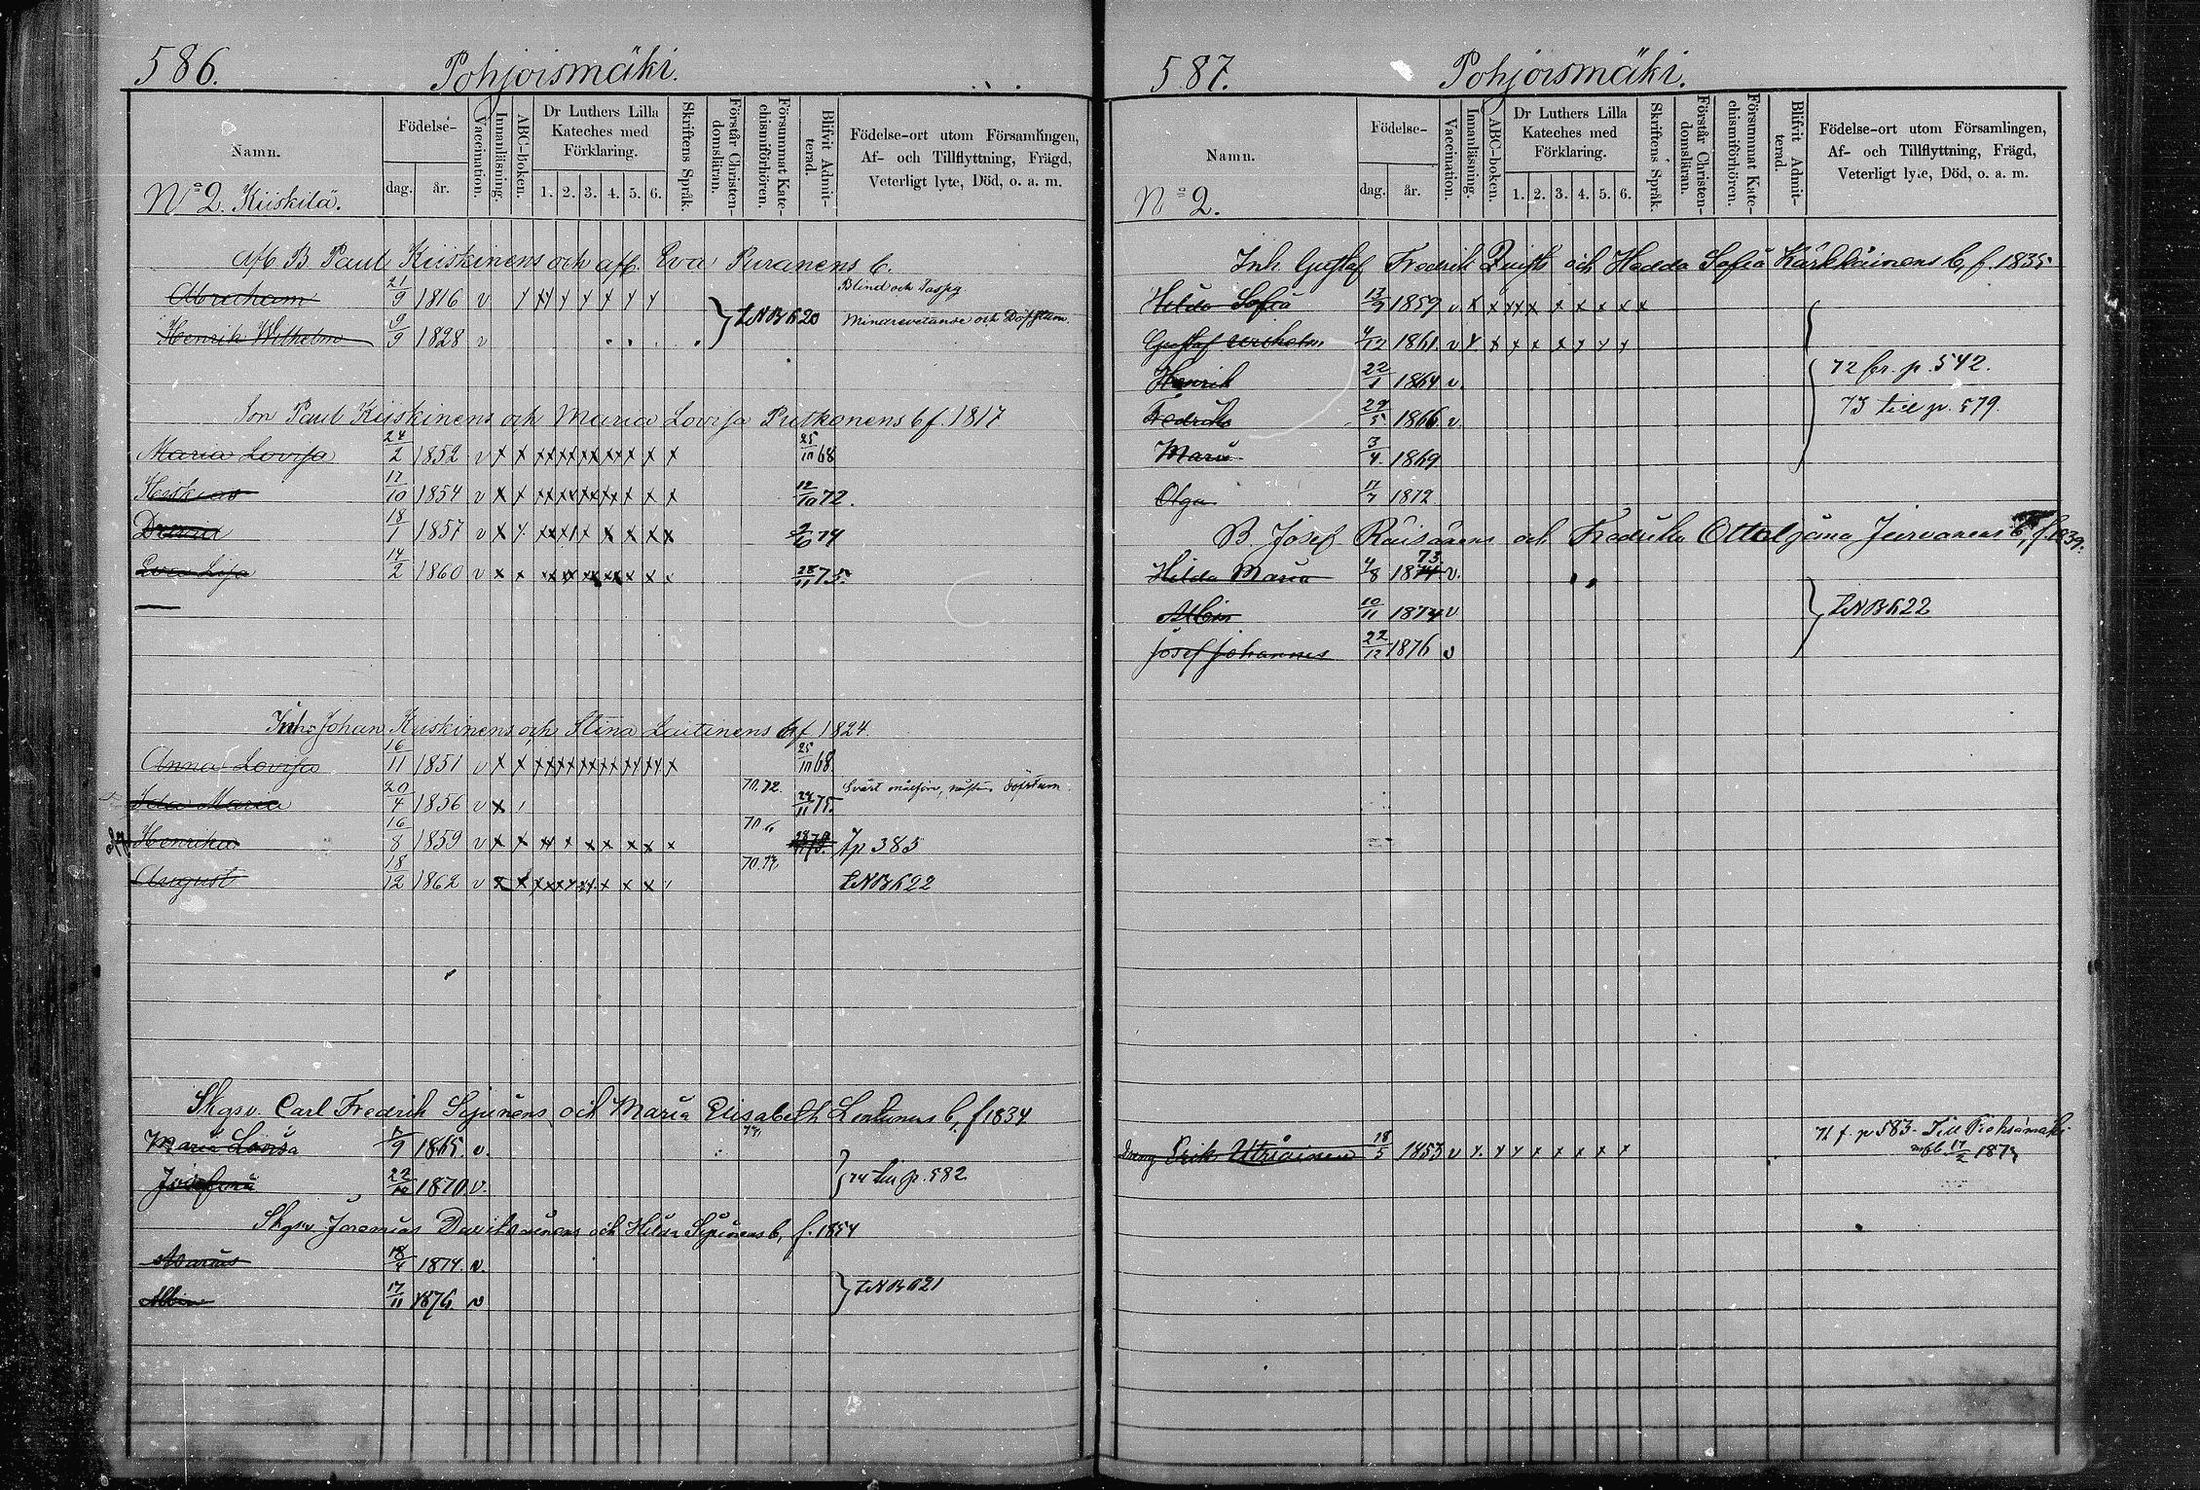 586. Pohjoismäki.
Namn.
Födelse-
dag. år.
Vaccination.
Innanläsning.
ABC-boken.
Dr Luthers Lilla
Kateches med
Förklaring.
1. 2. 3. 4. 5. 6.
Skriftens Språk.
Förstår Christen-
domsläran.
Försummat Kate-
chismiförhören.
Blifvit Admit-
terad.
Födelse-ort utom Församlingen,
Af- och Tillflyttning, Frägd,
Veterligt lyte, Död, o. a. m.
No 2. Kiiskilä.
afl. B Paul Kiiskinens och afl. Eva Puranens b.
Abraham 21/9 1816 v Blind och
Henrik Wilhelm 9/9 1828 v LNB h 20 Mindrevetande och Döfstum.
Son Paul Kiiskinens och Maria Lovisa Putkonens b f. 1817
Maria Lovisa 24/2 1852 v x x 25/10 68
Heskias 17/10 1854 v x x 12/10 72.
18/1 1857 v x 74
Eva Lisa 14/2 1860 v x x 28/11 75.
Inh. Johan Kiiskinens och Stina Laitinens b f 1824.
Anna Lovisa 16/11 1851 v x x 25/10 68.
Ida Maria 20/4 1856 v x 70.72. 24/11 75. Svårt målför, nästan döfstum.
Henrika 16/8 1859 v x x 70 Tp 385
August 18/12 1862 v x x LNB h 22
Skgsv. Carl Fredrik Sipinens och Maria Elisabeth Lintunens b, f 1834
Maria Lovisa 9 1865 v.
Josefina 22 1870 v. 74 till p. 582
Skgsv Jeremias Davitsainens och Hilda Sipinens b, f. 1854
18/4 1874. v.
Albin 17/11 1876 v LNB h 21
587. Pohjoismäki.
Namn.
Födelse-
dag. år.
Vaccination.
Innanläsning.
ABC-boken.
Dr Luthers Lilla
Kateches med
Förklaring.
1. 2. 3. 4. 5. 6.
Skriftens Språk.
Förstår Christen-
domsläran.
Försummat Kate-
chismiförhören.
Blifvit Admit-
terad.
Födelse-ort utom Församlingen,
Af- och Tillflyttning, Frägd,
Veterligt lyte, Död, o. a. m.
No 2.
Inh Gustaf Fredrik Quists och Hedda Sofia Kärkkäinens b, f. 1835
Hilda Sofia 1859 v x x
Gustaf 4/12 1861. v x. x
Henrik 22/1 1864 v. 72 fr. p. 542.
Fredrika 29/5 1866 v. 73 till p. 579.
Maria 3/4. 1869
Olga 17/7 1872
B Josef Räisänens och Fredrika Ottiljana b, f. 1839.
Hilda Maria 4/8 1873 v.
Albin 10/11 1874 v LNB h 22
Josef Johannes 22/12 1876 v
Dreng Erik Utriainen 18/5 1853 v x. x x x x x x x 71 f. p 583. Till Pieksämäki
17/2 1873